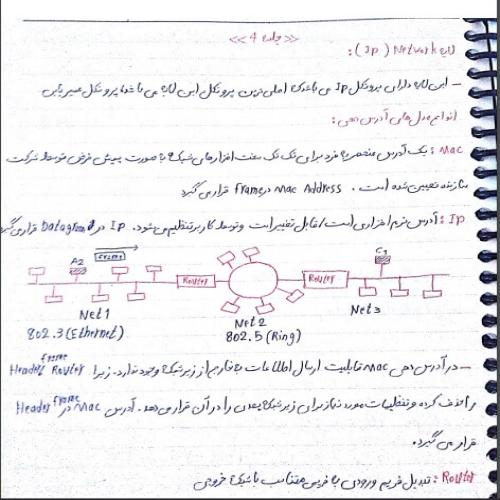 <<جلسه 4>>
لایه Network (Ip):
- این لایه دارای پروتکل Ip می باشد که اصلی ترین پروتکل این لایه می باشد پروتکل مسیریابی
انواع مدل های آدرس دهی:
Mac: یک آدرس منحصر به فرد برای تک تک سخت افزارهای شبکه به صورت پیش فرض توسط شرکت
سازنده تعیین شده است. Mac Address در Frame قرار می گیرد
Ip: آدرس نرم افزاری است / قابل تغییر است و توسط کاربر تنظیم می شود. Ip در Datagram قرار می گیرد
A2 Frame C1
Router Router
Net1 Net2 Net3
802.3 (Ethernet) 802.5 (Ring)
- در آدرس دهی Mac قابلیت ارسال اطلاعات به خارج از زیر شبکه وجود ندارد. زیرا Router Header frame
را حذف کرده و تنظیمات مورد نیاز برای زیر شبکه بعدی را در آن قرار می دهد. آدرس Mac در Header frame
قرار می گیرد.
Router: تبدیل فریم ورودی به فریم متناسب با شبکه خروجی